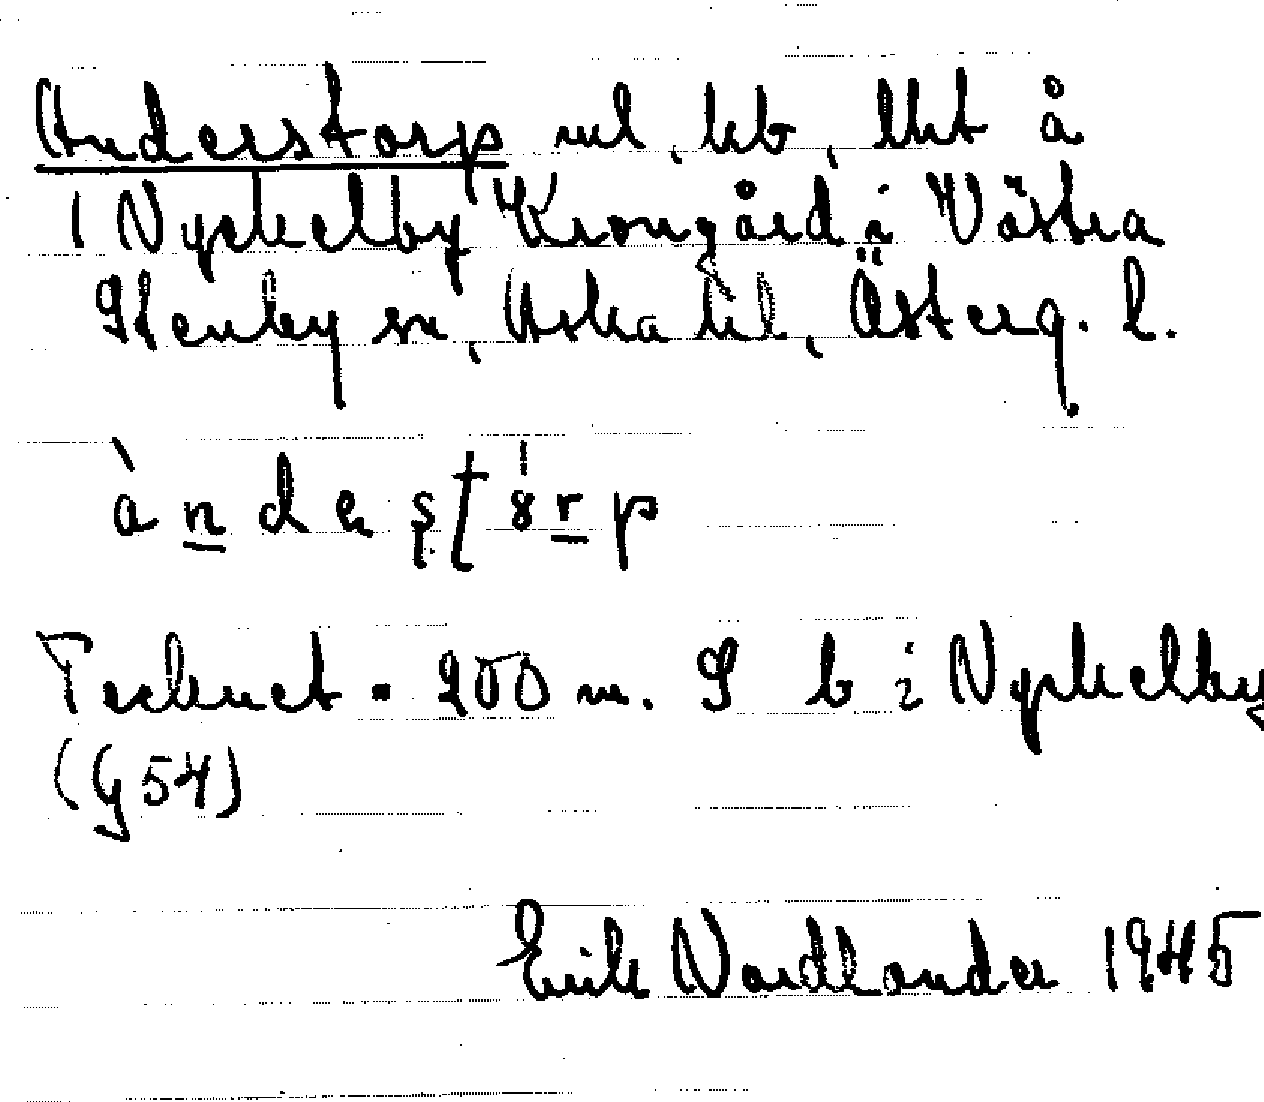 Anderstorp ml, kb, lht å
1 Nyckelby Krongård i Västra
Stenby sn, Aska hd, Österg. l.
àndeşt8rp
Tecknet • 200 m. S b i Nyckelby
(G54)
Erik Nordlander 1945